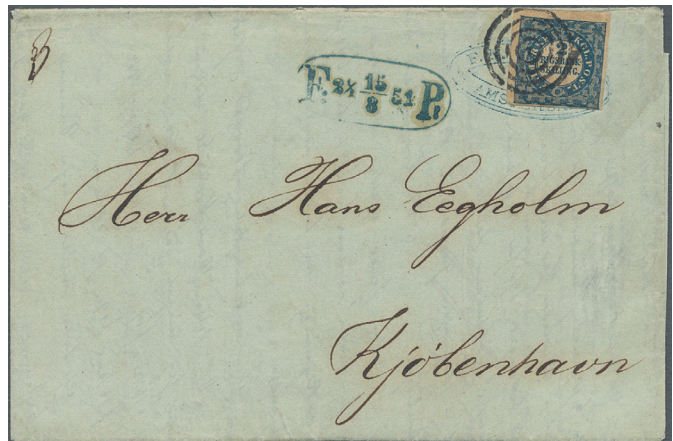 F. 2½ 15/8 51 P.
2
Herr Hans Eegholm
Kjöbenhavn